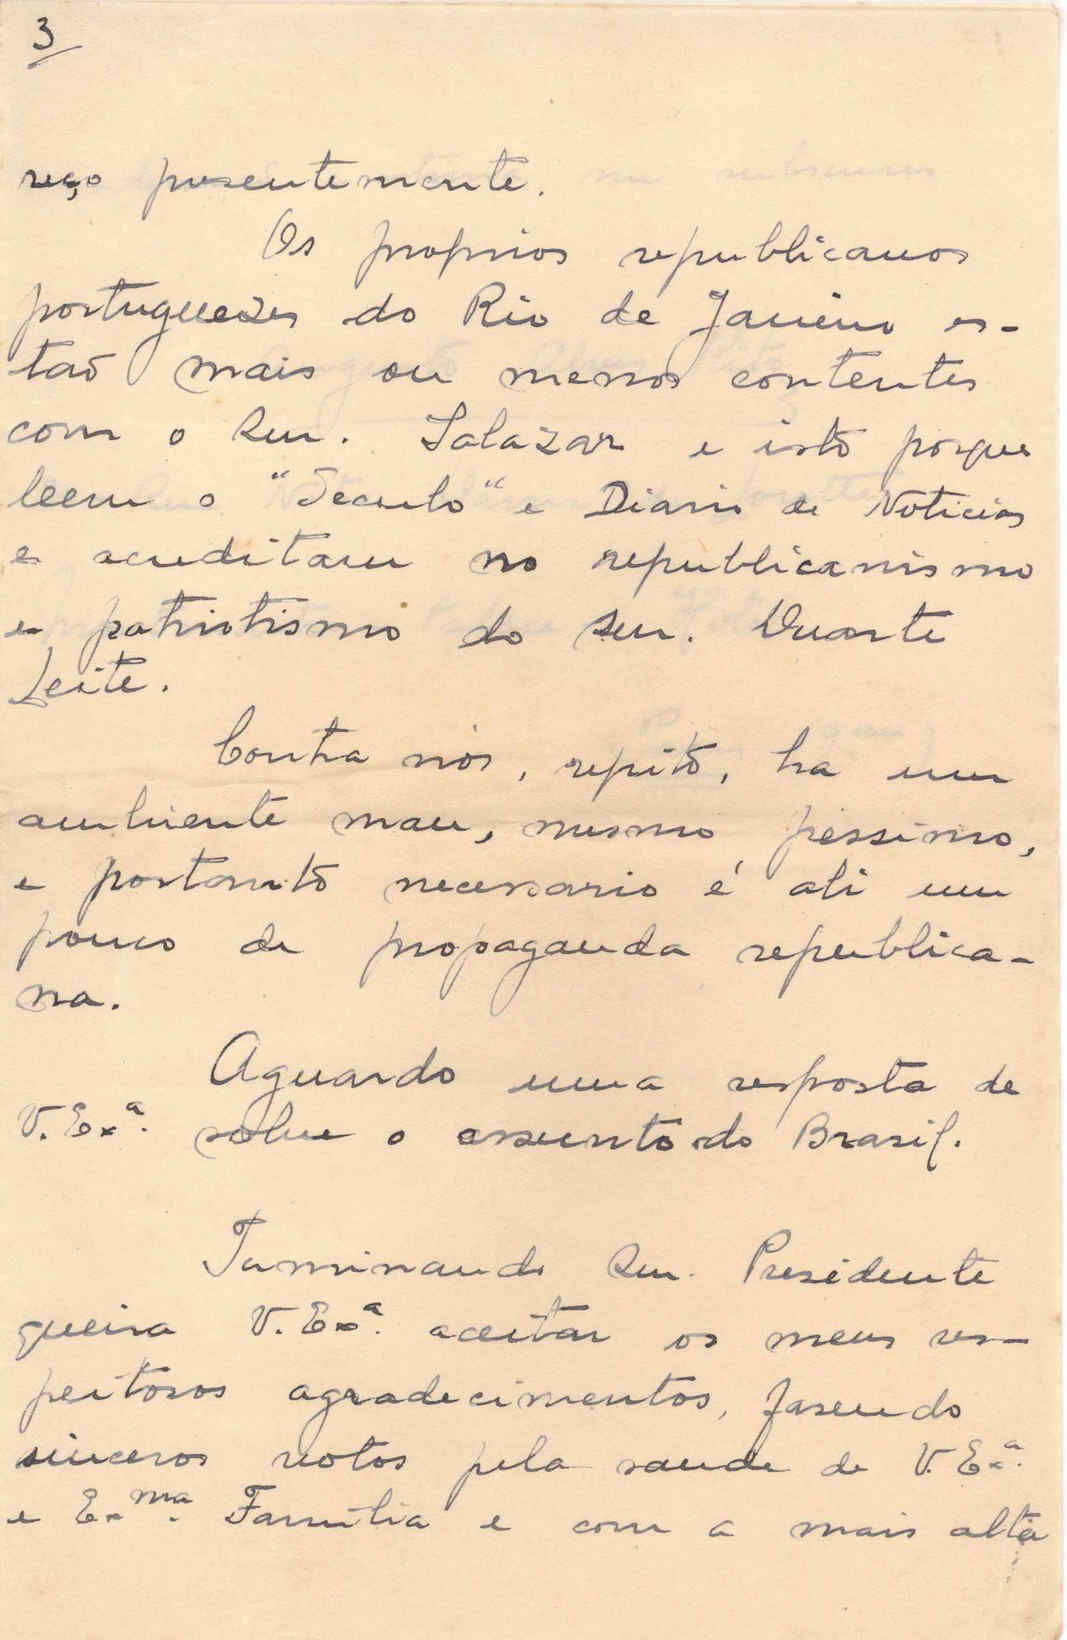 3
reço presentemente.
Os proprios republicanos
portuguezes do Rio de Janeiro es-
taõ mais ou menos contentes
com o Snr. Salazar e isto porque
leem o "Seculo" e Diario de Noticias
e acreditam no republicanismo
e patriotismo do Snr. Duarte
Leite.
Contra nós, repito, ha um
ambiente mau, mesmo pessimo,
e portanto necessario é ali um
pouco de propaganda republica-
na.
Aguardo uma resposta de
V. Exª. sobre o assunto do Brasil.
Terminando Snr. Presidente
queira V. Exª. aceitar os meus res-
peitosos agradecimentos, fasendo
sinceros votos pela saude de V. Exª.
e Exma. Familia e com a mais alta